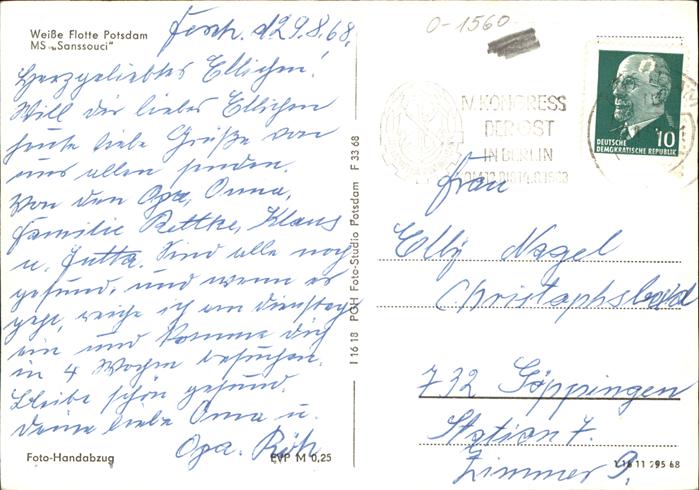 Weiße Flotte Potsdam
MS „Sanssouci"
d. 29.8.68.
Herzgeliebtes Ellichen!
Will dir liebes Ellichen
heute liebe Grüße von
uns allen senden.
Von den Opa, Oma,
Familie Rettke, Klaus
u. Jutta. Sind alle noch
gesund, und wenn es
geht, reiche ich am Dienstag
ein und komme dich
in 4 Wochen besuchen.
Bleibe schön gesund.
Deine liebe Oma u.
Opa.
Foto-Handabzug
EVP M 0,25
I 16 18 PGH Foto-Studio Potsdam F 33 68
0-1560
IV. KONGRESS
DER DST
IN BERLIN
DEUTSCHE
DEMOKRATISCHE REPUBLIK
10
Frau
Elly Nagel
Christophsbad
732 Göppingen
Station 7.
Zimmer 9,